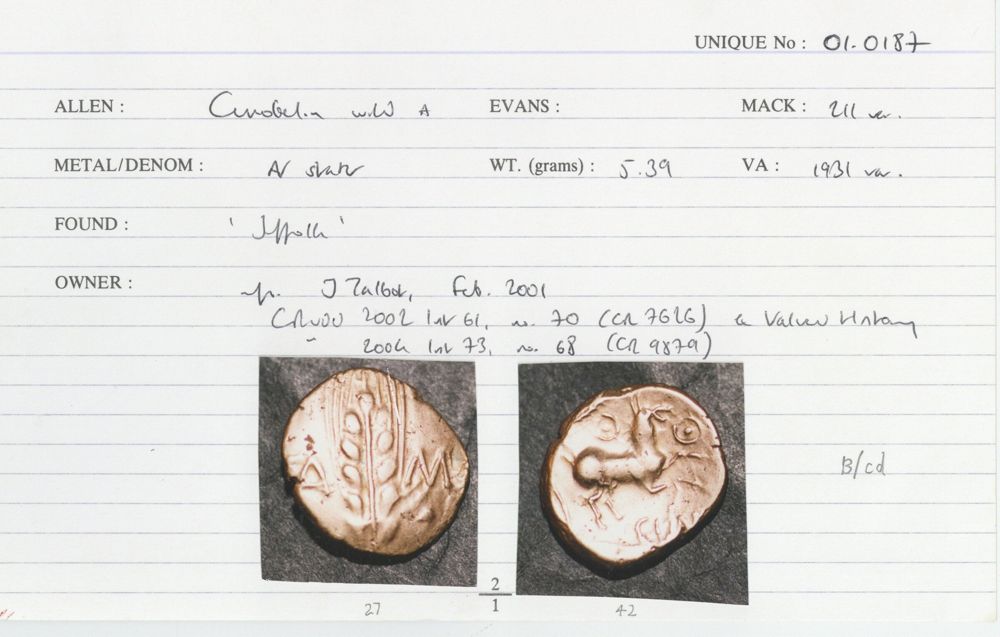 UNIQUE No : 01-0187
ALLEN : Cunobelin wild A EVANS : MACK : 211 var.
METAL/DENOM : AV stater WT. (grams) : 5.39 VA : 1931 var.
FOUND : 'Suffolk'
OWNER : J Talbot, Feb. 2001
2002 list 61, no. 70 (CR 7626)
" 2004 list 73, no. 68 (CR 9879)
M
CUN
B/cd
2
1
27 42